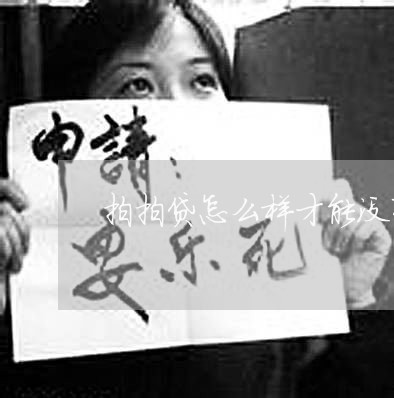 申請：
拍拍贷怎么样才能没
安乐死